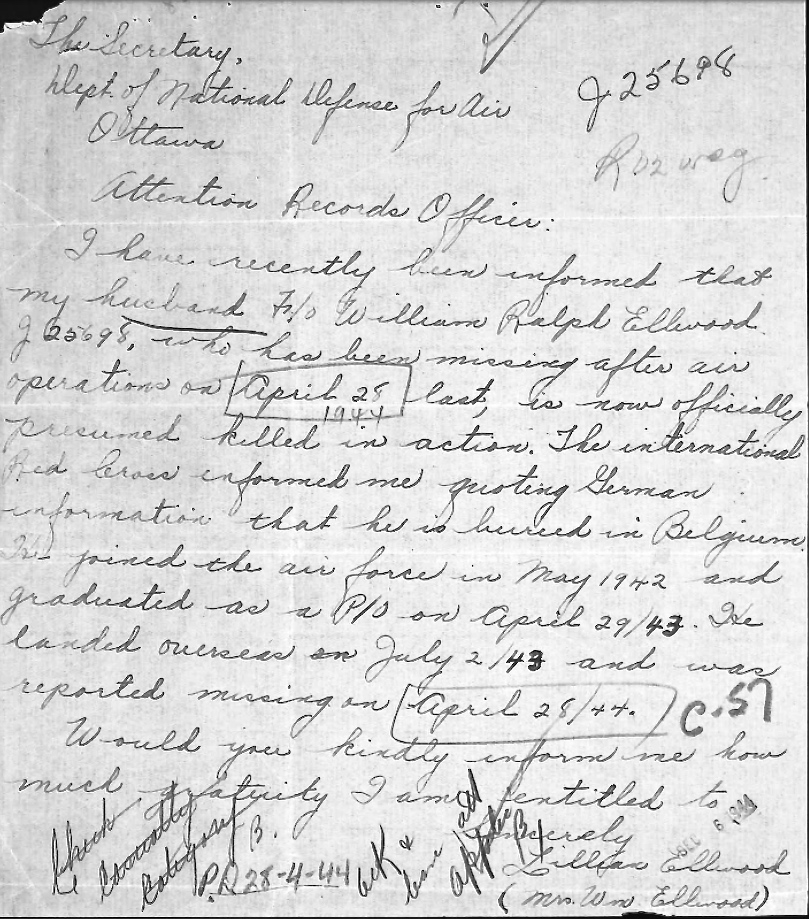 The Secretary,
Dept. of National Defense for Air
Ottawa
J 25698
Attention Records Officer:
I have recently been informed that
my husband F/O William Ralph Ellwood
J 25698, who has been missing after air
operations on April 28 last, is now officially
1944
presumed killed in action. The international
Red Cross informed me quoting German
information that he is buried in Belgium
He joined the air force in May 1942 and
graduated as a P/O on April 29/43. He
landed overseas on July 2/43 and was
reported missing on April 28/44.
C.57
Would you kindly inform me how
much gratuity I am entitled to
Sincerely
Lillian Ellwood
(Mrs. Wm. Ellwood)
Check
Casualty
Category
B.
P.D 28-4-44
ack &